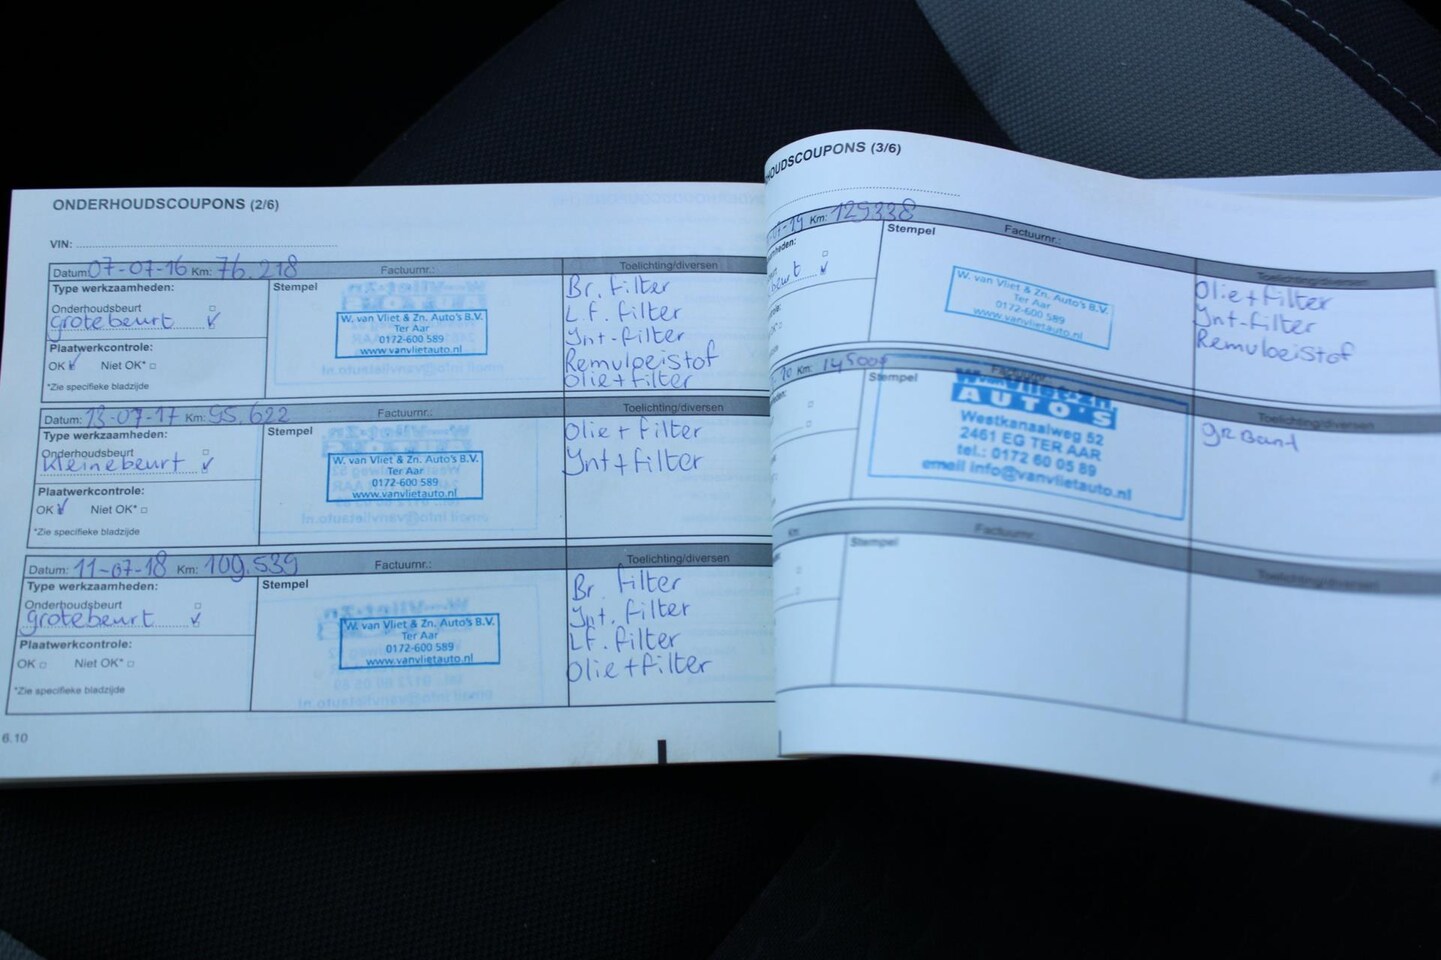 ONDERHOUDSCOUPONS (2/6)
VIN:
Datum: 07-07-16 Km: 76.218 Factuurnr.: Toelichting/diversen
Type werkzaamheden:
Onderhoudsbeurt
grotebeurt
Plaatwerkcontrole:
OK Niet OK*
*Zie specifieke bladzijde
Stempel
W. van Vliet & Zn. Auto's B.V.
Ter Aar
0172-600 589
www.vanvlietauto.nl
Br. filter
L.f. filter
Int-filter
Remvloeistof
Olie+filter
Datum: 13-07-17 Km: 95.622 Factuurnr.: Toelichting/diversen
Type werkzaamheden:
Onderhoudsbeurt
kleinebeurt
Plaatwerkcontrole:
OK Niet OK*
*Zie specifieke bladzijde
Stempel
W. van Vliet & Zn. Auto's B.V.
Ter Aar
0172-600 589
www.vanvlietauto.nl
Olie + filter
Int + filter
Datum: 11-07-18 Km: 109.539 Factuurnr.: Toelichting/diversen
Type werkzaamheden:
Onderhoudsbeurt
grotebeurt
Plaatwerkcontrole:
OK Niet OK*
*Zie specifieke bladzijde
Stempel
W. van Vliet & Zn. Auto's B.V.
Ter Aar
0172-600 589
www.vanvlietauto.nl
Br. filter
Int. filter
Lf. filter
Olie+filter
6.10
HOUDSCOUPONS (3/6)
-07-19 Km: 129338 Factuurnr.: Toelichting/diversen
heden:
beurt
Stempel
W. van Vliet & Zn. Auto's B.V.
Ter Aar
0172-600 589
www.vanvlietauto.nl
Olie+filter
Int-filter
Remvloeistof
Km: Factuurnr.: Toelichting/diversen
Stempel
W. van Vliet & Zn.
AUTO'S
Westkanaalweg 52
2461 EG TER AAR
tel.: 0172 60 05 89
email info@vanvlietauto.nl
gr Band
Km: Factuurnr.: Toelichting/diversen
Stempel